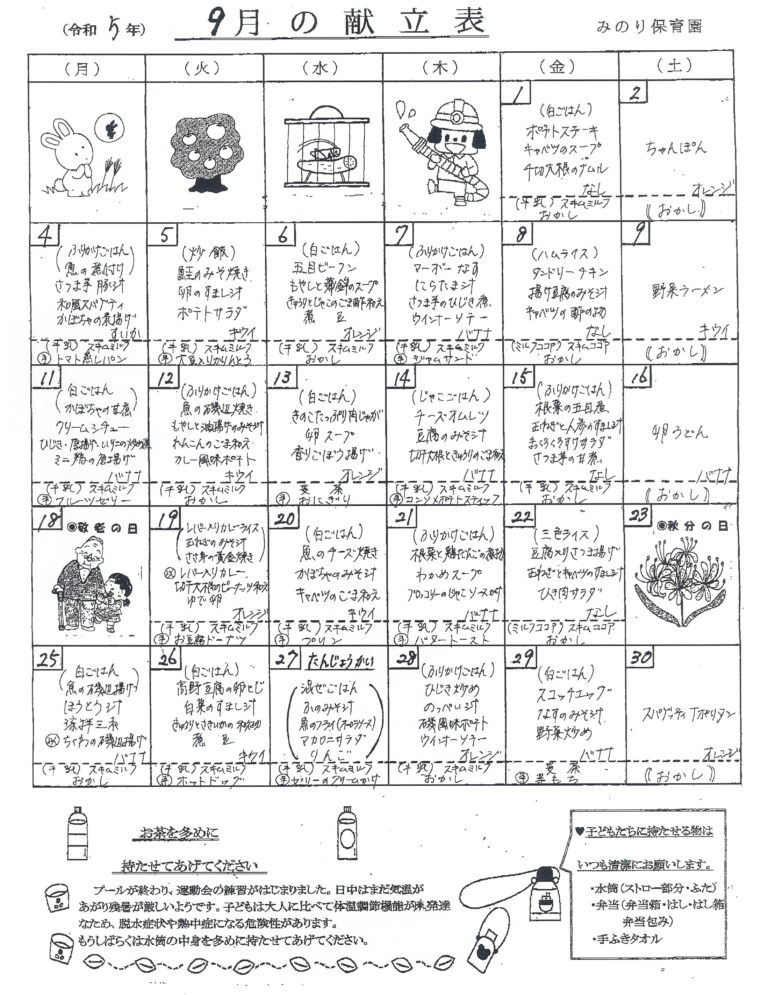 (令和 5年)
9月の献立表
みのり保育園
(月)
(火)
(水)
(木)
(金)
(土)
1
(白ごはん)
ポテトステーキ
キャベツのスープ
千切大根のナムル
なし
(牛乳) スキムミルク
おかし
2
ちゃんぽん
オレンジ
(おかし)
4
(ふりかけごはん)
魚の煮付け
さつま芋豚汁
和風スパゲティ
かぼちゃの素揚げ
すいか
(牛乳) スキムミルク
(手) トマト蒸しパン
5
(炒飯)
鮭のみそ焼き
卵のすまし汁
ポテトサラダ
キウイ
(牛乳) スキムミルク
(手) 大豆入りかりんとう
6
(白ごはん)
五目ビーフン
もやしと春雨のスープ
きゅうりとじゃこのごま酢和え
煮豆
オレンジ
(牛乳) スキムミルク
おかし
7
(ふりかけごはん)
マーボーなす
にらたま汁
さつま芋のひじき煮
ウインナーソテー
バナナ
(牛乳) スキムミルク
(手) ジャムサンド
8
(ハムライス)
タンドリーチキン
揚げ豆腐のみそ汁
キャベツの酢の物
なし
(ミルクココア) スキムココア
おかし
9
野菜ラーメン
キウイ
(おかし)
11
白ごはん
かぼちゃの甘煮
クリームシチュー
ミニ鶏の唐揚げ
バナナ
(牛乳) スキムミルク
(手) フルーツゼリー
12
(ふりかけごはん)
魚の磯辺焼き
もやしと油揚げのみそ汁
れんこんのごま和え
カレー風味ポテト
キウイ
(牛乳) スキムミルク
おかし
13
(白ごはん)
きのこたっぷり肉じゃが
卵スープ
香りごぼう揚げ
オレンジ
麦茶
(手) おにぎり
14
(じゃこごはん)
チーズオムレツ
豆腐のみそ汁
切干大根ときゅうりのごま和え
バナナ
(牛乳) スキムミルク
(手) コンソメポテトスティック
15
(ふりかけごはん)
根菜の五目煮
玉ねぎと人参のすまし汁
さつま芋の甘煮
なし
(牛乳) スキムミルク
おかし
16
卵うどん
バナナ
(おかし)
18
◉敬老の日
19
レバー入りカレーライス
玉ねぎのみそ汁
ささ身の黄金焼き
レバー入りカレー
切干大根のピーナッツ和え
ゆで卵
オレンジ
(牛乳) スキムミルク
(手) お豆腐ドーナツ
20
(白ごはん)
魚のチーズ焼き
かぼちゃのみそ汁
キャベツのごま和え
キウイ
(牛乳) スキムミルク
(手) プリン
21
(ふりかけごはん)
わかめスープ
ブロッコリーのじゃこソースかけ
バナナ
(牛乳) スキムミルク
(手) バタートースト
22
(三色ライス)
豆腐入りさつま揚げ
玉ねぎとキャベツのすまし汁
ひき肉サラダ
なし
(ミルクココア) スキムココア
おかし
23
◉秋分の日
25
白ごはん
魚の磯辺揚げ
ほうとう汁
涼拌三糸
ちくわの磯辺揚げ
バナナ
(牛乳) スキムミルク
おかし
26
(白ごはん)
高野豆腐の卵とじ
白菜のすまし汁
きゅうりとささいかの和物
煮豆
キウイ
(牛乳) スキムミルク
(手) ホットドッグ
27 たんじょうかい
混ぜごはん
ふのみそ汁
魚のフライ(オーロラソース)
マカロニサラダ
りんご
(牛乳) スキムミルク
(手) ゼリーのクリームかけ
28
(ふりかけごはん)
ひじき炒め
のっぺい汁
磯風味ポテト
ウインナーソテー
オレンジ
(牛乳) スキムミルク
おかし
29
(白ごはん)
スコッチエッグ
なすのみそ汁
野菜炒め
バナナ
麦茶
30
スパゲッティナポリタン
オレンジ
(おかし)
お茶を多めに
持たせてあげてください
プールが終わり、運動会の練習がはじまりました。日中はまだ気温が
あがり残暑が厳しいようです。子どもは大人に比べて体温調節機能が未発達
なため、脱水症状や熱中症になる危険性があります。
もうしばらくは水筒の中身を多めに持たせてあげてください。
♥子どもたちに持たせる物は
いつも清潔にお願いします。
・水筒(ストロー部分・ふた)
・弁当(弁当箱・はし・はし箱
弁当包み)
・手ふきタオル